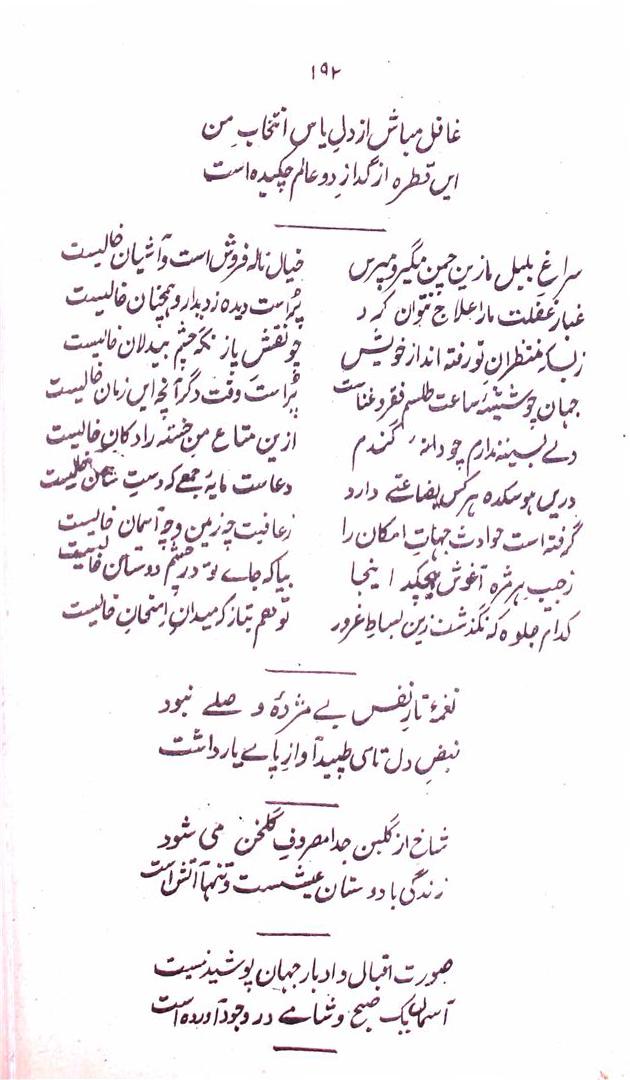 ۱۹۲
غافل مباش از دلِ یاس انتخابِ من
این قطره از گدازِ دو عالم چکیده است
سراغِ بلبلِ ما زین چمن مگیر و مپرس خیال ناله فروش است و آشیان خالیست
غبارِ غفلت ما را علاج نتوان کرد پُر است دیده ز دیدار و همچنان خالیست
زبسکہ منتظرانِ تو رفته اند از خویش چو نقشِ پاز نگه چشم بیدلان خالیست
جهان چو شیشهٔ ساعت طلسمِ فقر و غناست پُر است وقت دگر آنچه این زمان خالیست
دلے بسینه ندارم چو دانهٔ گندم ازین متاع منِ خسته را دکان خالیست
درین هوسکده هر کس بضاعتے دارد دعاست مایهٔ جمعے که دستِ شان خالیست
گرفته است حوادث جهاتِ امکان را ز عافیت چه زمین و چه آسمان خالیست
زجیبِ هر مژه آغوش میچکد اینجا بیا که جاے تو در چشم دوستان خالیست
کدام جلوه که نگذشت زین بساطِ غرور تو هم بتاز که میدانِ امتحان خالیست
نغمهٔ تارِ نفس بے مژدهٔ وصلے نبود
نبضِ دل تا می طپید آوازِ پاے یار داشت
شاخ از گلبن جدا مصروفِ گلخن می شود
زندگی با دوستان عیشست و تنها آتش است
صورت اقبال و ادبارِ جهان پوشیده نیست
آسمان یک صبح و شامے در وجود آورده است